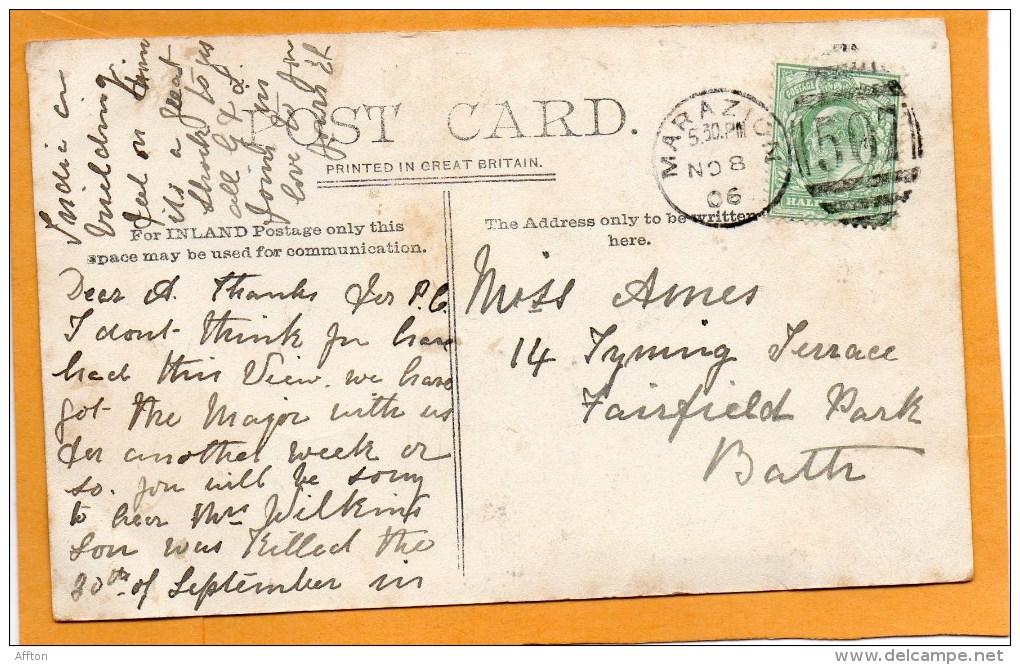 POST CARD.
PRINTED IN GREAT BRITAIN.
For INLAND Postage only this
space may be used for communication.
The Address only to be written
here.
MARAZION
5.30.PM
NO 8
06
POSTAGE
HALF
Dear A. Thanks for P.C.
I dont think you have
had this View. we have
got the Major with us
for another week or
so. you will be sorry
to hear Mrs Wilkins
son was Killed the
20th of September in
India on
building
fell on him
its a great
shock to us
all
Join in
love to you
yours
Miss Ames
14 Tyning Terrace
Fairfield Park
Bath
Affton
delcampe.net